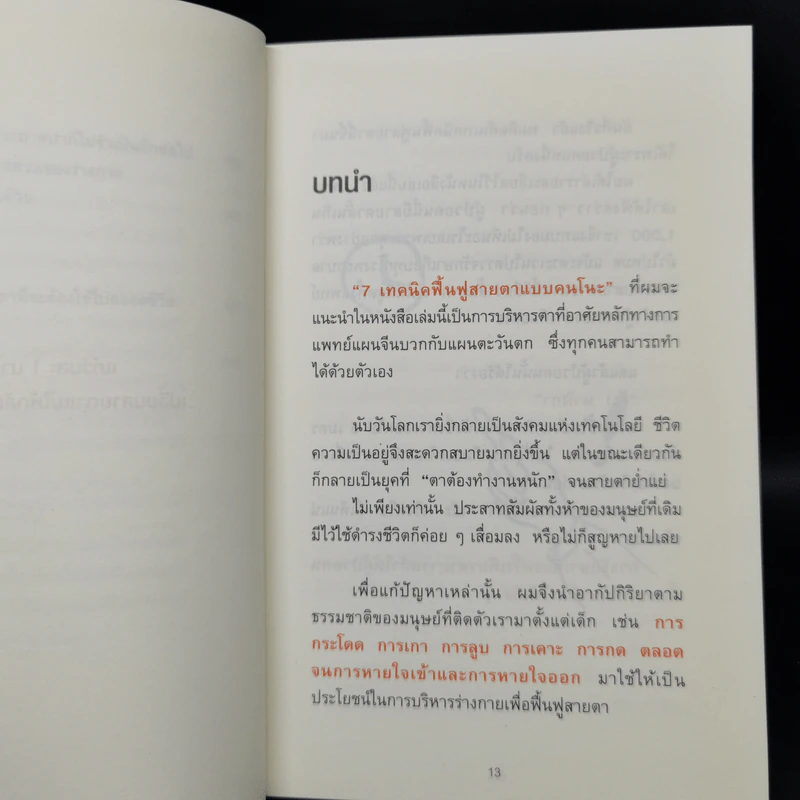 บทนำ
“7 เทคนิคฟื้นฟูสายตาแบบคนโนะ” ที่ผมจะ
แนะนำในหนังสือเล่มนี้เป็นการบริหารตาที่อาศัยหลักทางการ
แพทย์แผนจีนบวกกับแผนตะวันตก ซึ่งทุกคนสามารถทำ
ได้ด้วยตัวเอง
นับวันโลกเรายิ่งกลายเป็นสังคมแห่งเทคโนโลยี ชีวิต
ความเป็นอยู่จึงสะดวกสบายมากยิ่งขึ้น แต่ในขณะเดียวกัน
ก็กลายเป็นยุคที่ “ตาต้องทำงานหนัก” จนสายตาย่ำแย่
ไม่เพียงเท่านั้น ประสาทสัมผัสทั้งห้าของมนุษย์ที่เดิม
มีไว้ใช้ดำรงชีวิตก็ค่อย ๆ เสื่อมลง หรือไม่ก็สูญหายไปเลย
เพื่อแก้ปัญหาเหล่านั้น ผมจึงนำอากัปกิริยาตาม
ธรรมชาติของมนุษย์ที่ติดตัวเรามาตั้งแต่เด็ก เช่น การ
กระโดด การเกา การลูบ การเคาะ การกด ตลอด
จนการหายใจเข้าและการหายใจออก มาใช้ให้เป็น
ประโยชน์ในการบริหารร่างกายเพื่อฟื้นฟูสายตา
13